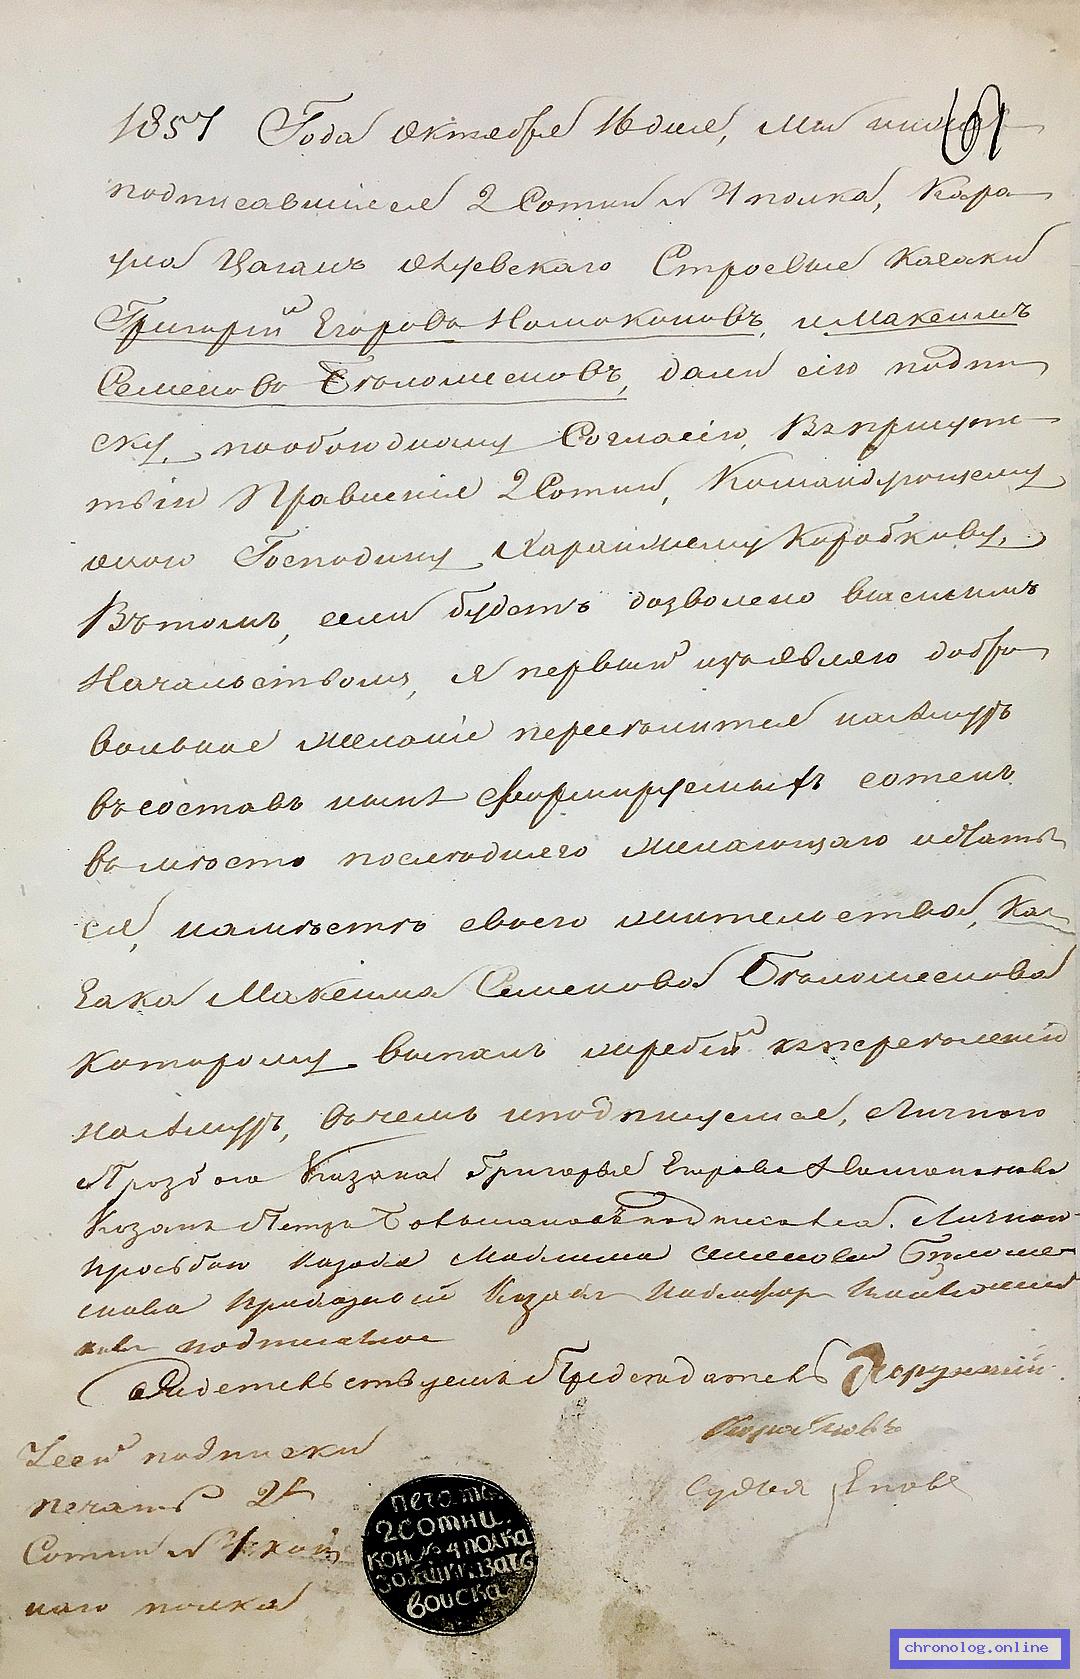 1857 Года октября 16 дня, мы ниже
61
подписавшіеся 2 Сотни № 4 полка, Кара
ула Цаганъ Олуевскаго Строевые казаки
Григорій Егоровъ Номоконовъ, и Максимъ
Семеновъ Бѣломѣсновъ, дали сію подпи
ску, пообоюдному Согласію, Въ присутс
твіи Правленія 2 Сотни, Командующему
оною Господину Хорунжему Коробкову,
Въ томъ, если будетъ дозволено высшимъ
Начальствомъ, я первый изъявляю добро
вольное желаніе переселится на Амуръ
въ составъ нынѣ формируемыхъ сотенъ
вмѣсто послѣдняго желающаго остать
ся, на мѣстѣ своего жительства, Ка
зака Максима Семенова Бѣломѣснова
которому выпалъ жребій къ переселенію
на Амуръ, въ чемъ и подписуемся, Личною
Прозбою Казака Григорья Егорова Номоконова
Казакъ Петръ подписался. Личною
прозбою казака Максима Семенова Бѣломе
снова Приказный Казакъ
подписался
Свидетельствуемъ Председатель Хорунжій
Коробковъ
Судья Еповъ
У сей подписки
печать 2й
Сотни № 4 кон
наго полка
печать
2 сотни.
кон: № 4 полка
Забайк: казач
войска
chronolog.online